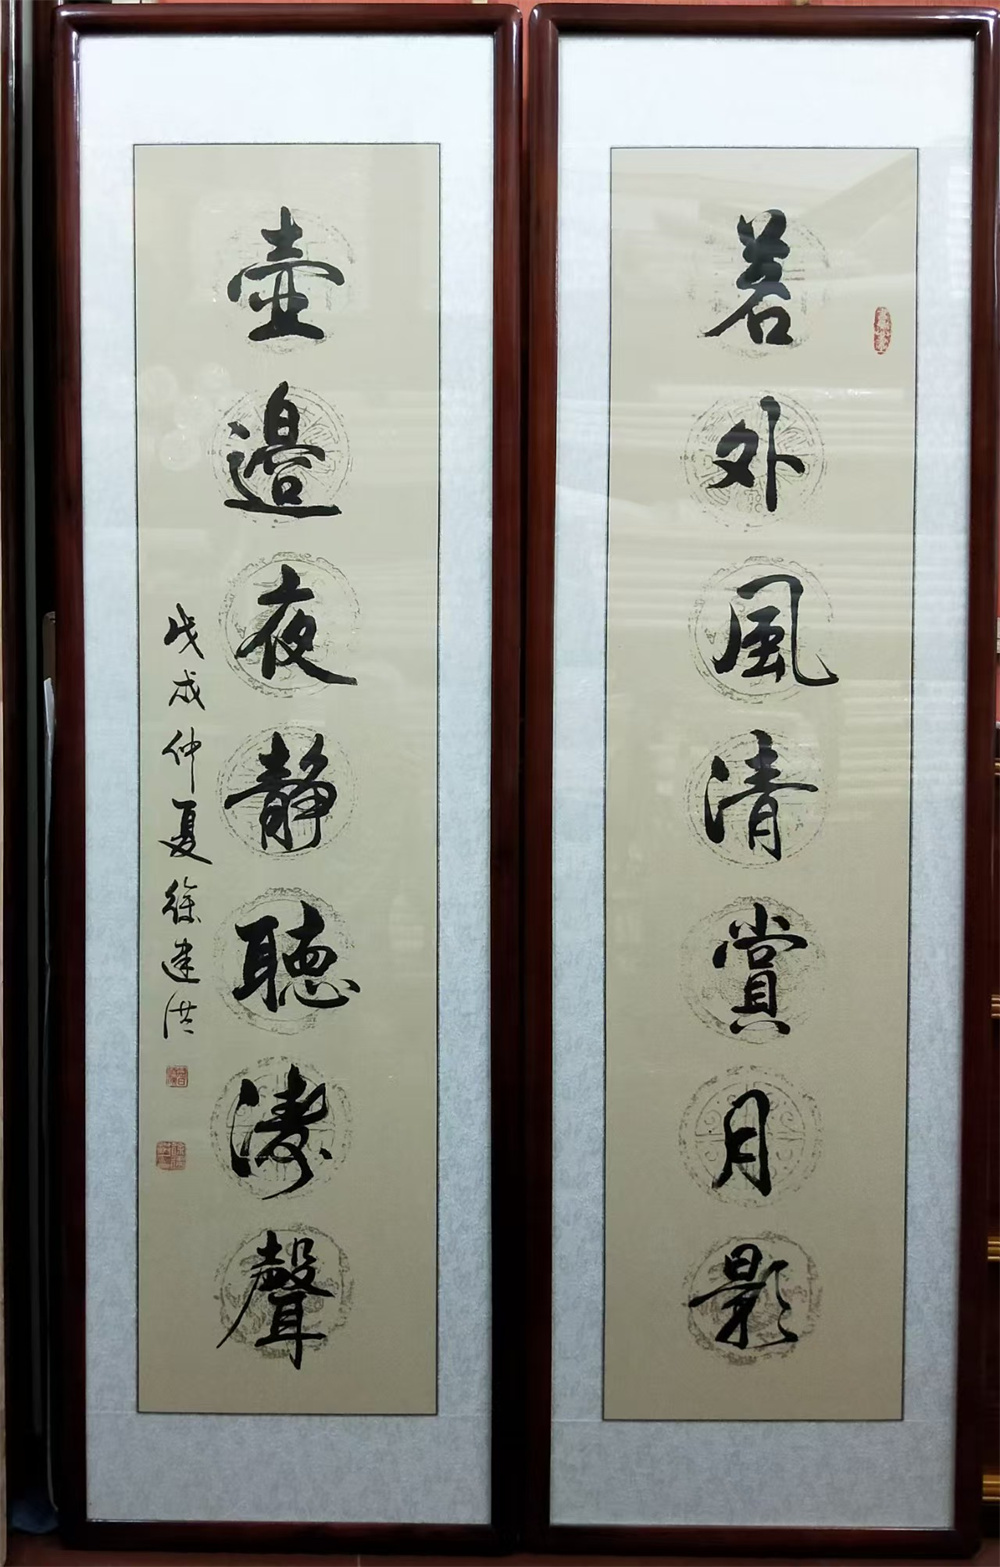 茗外風清賞月影
壺邊夜靜聽濤聲
戊戌仲夏徐建洪